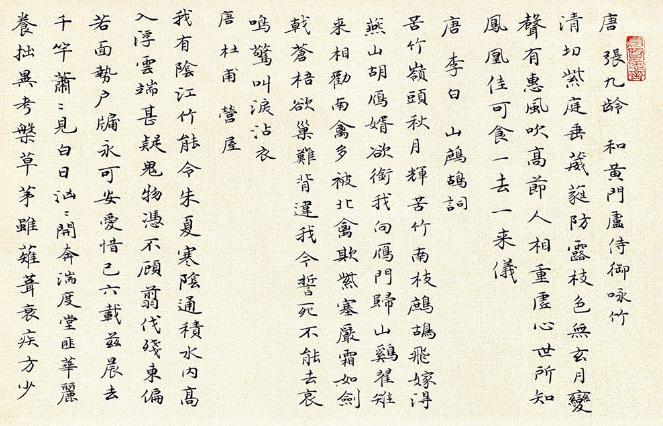 唐 張九齡 和黃門盧侍御咏竹
清切紫庭垂葳蕤防露枝色無玄月變
聲有惠風吹高節人相重虛心世所知
鳳凰佳可食一去一来儀
唐 李白 山鷓鴣詞
苦竹嶺頭秋月輝苦竹南枝鷓鴣飛嫁得
燕山胡鴈婿欲銜我向鴈門歸山鷄翟雉
来相勸南禽多被北禽欺紫塞嚴霜如劍
戟蒼梧欲巢難背違我今誓死不能去哀
鳴驚叫淚沾衣
唐 杜甫 營屋
我有陰江竹能令朱夏寒陰通積水内高
入浮雲端甚疑鬼物憑不顧翦伐殘東偏
若面勢户牖永可安愛惜已六載兹晨去
千竿蕭〻見白日汹〻開奔湍度堂匪華麗
養拙異考槃草茅雖薙葺衰疾方少